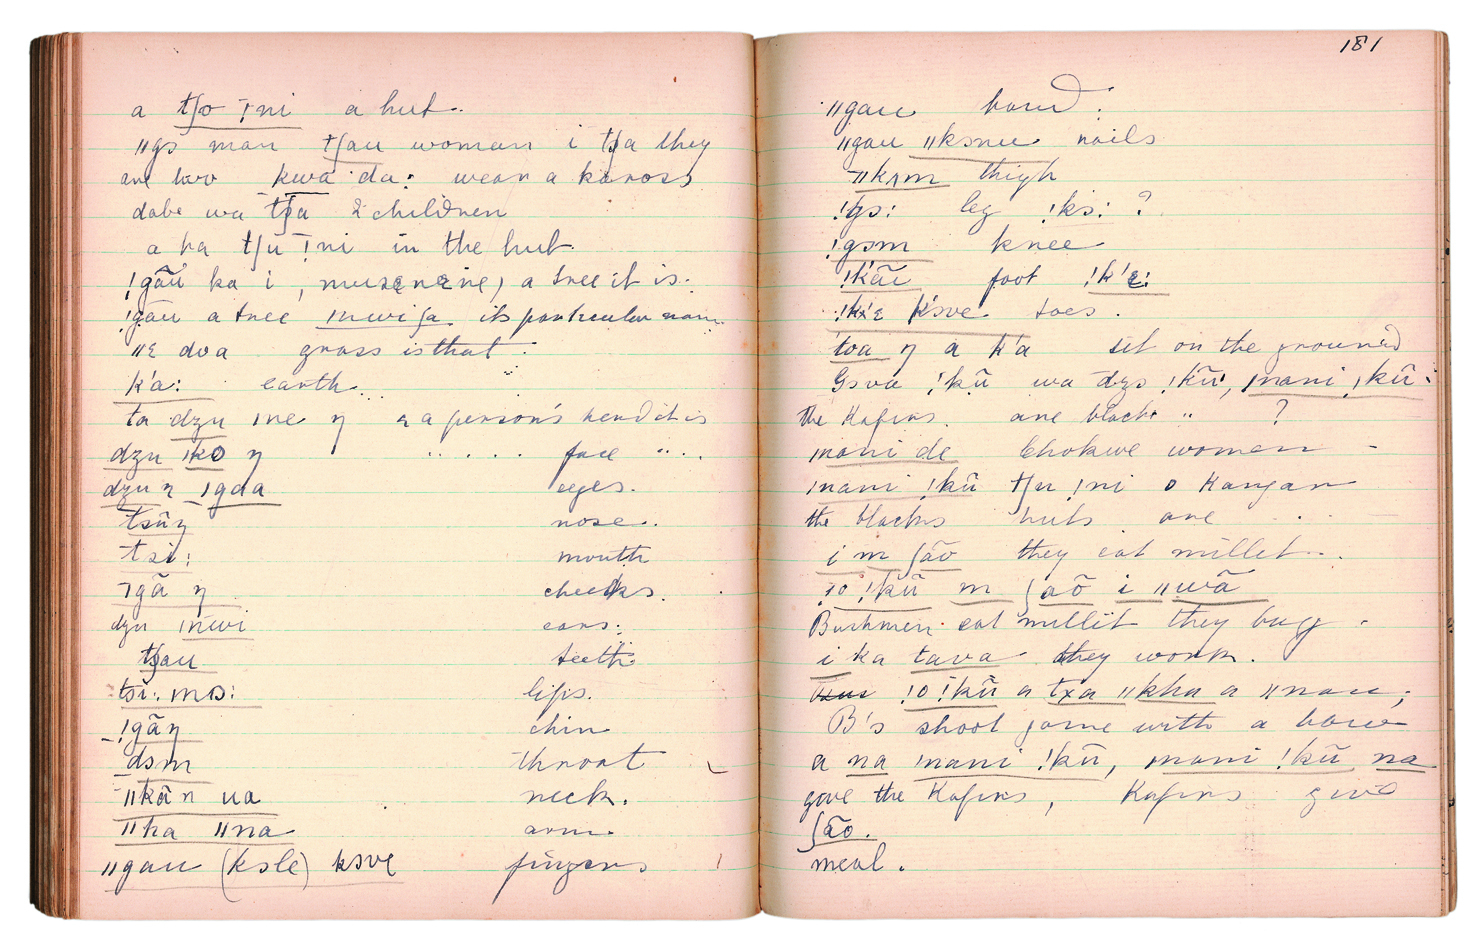 a tʃo ꞌni a hut.
ǁgɜ man tʃau woman i tʃa they
are two kwa da: wear a kaross
dabe wa tʃa 2 children
a ha tʃu ꞌni in the hut.
!gãũ ka i, a tree it is.
!gãu a tree its particular name.
ǁɛ doa grass is that.
k'a: earth.
ta dzu ŋ a person's head it is
dzu ǀko ŋ . . . . . face " . . .
dzu ŋ ǀgda eyes.
tsũŋ nose.
tsi: mouth
ꞌgã ŋ cheeks.
dzu ears.
tʃau teeth
tsi: mɔ: lips.
!gãŋ chin
dɜm throat
ǁkãn ua neck.
ǁha ǁna arm.
ǁgau (kɜle) kɜve fingers
181
ǁgau hand.
ǁgau ǁkɜnu nails
thigh
!gɜ: leg !kɜ: ?
!gɜm knee
!kãũ foot !k'ɛ:
!k'ɛ k'ɜve toes.
toa ŋ a k'a sit on the ground
Gɜva !kũ wa dzɜ !kũ, ǀnani !kũ.
the Kafirs. are black " ?
ǀnani de Chokwe women -
ǀnani !kũ tʃu ꞌni o Kangan
the blacks huts are . .
i m ʃãõ they eat millet..
ꞌo !kũ m ʃãõ i ǁwã
Bushmen eat millet they buy .
i ka tava they work.
!o !kũ a txa ǁkha a ǁnau;
B's shoot game with a bow
a na ǀnani !kũ, ǀnani !kũ na
gave the Kafirs, Kafirs give
ʃão.
meal.